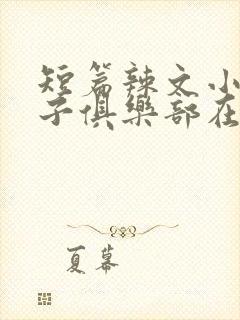 短篇辣文小
子俱樂部在
夏幕